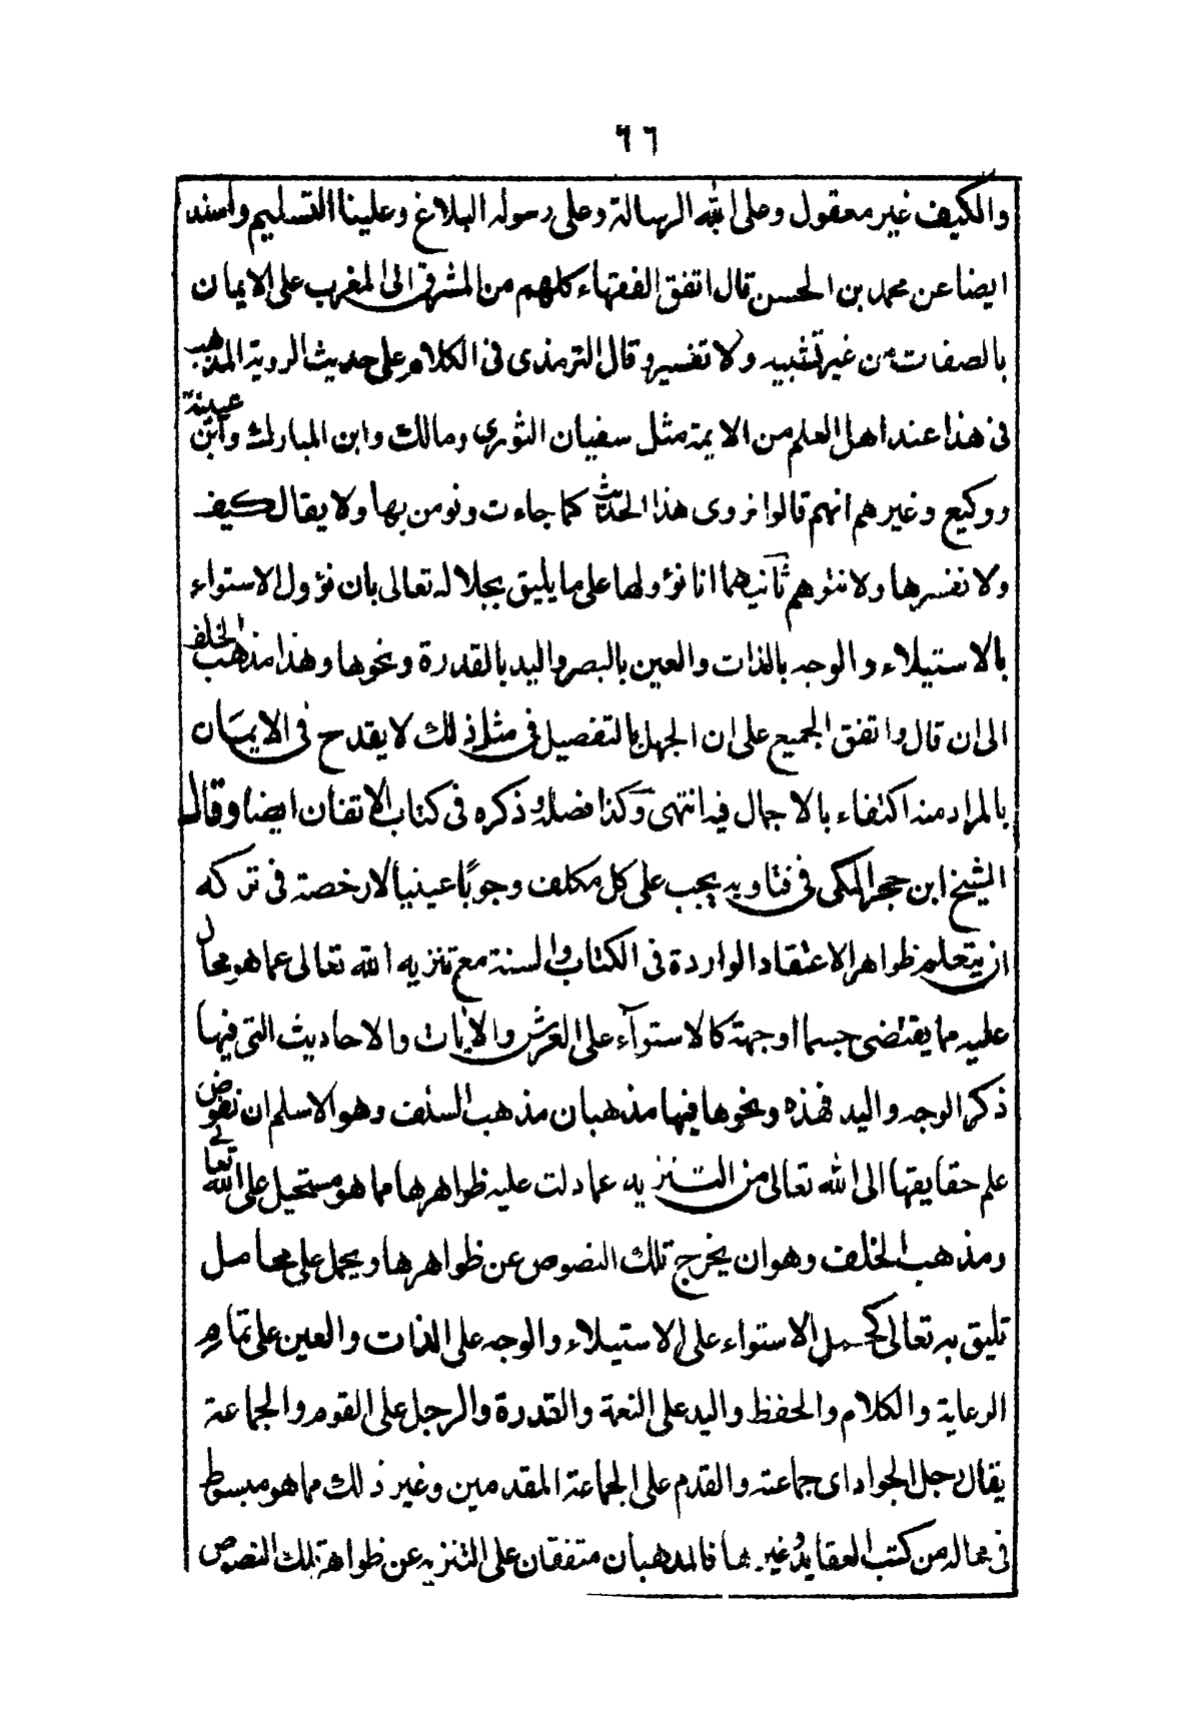 ٦٦
والكيف غير معقول وعلى الله الرسالة وعلى رسوله البلاغ وعلينا التسليم واسند
ايضا عن محمد بن الحسن قال اتفق الفقهاء كلهم من المشرق الى المغرب على الايمان
بالصفات من غير تشبيه ولا تفسير وقال الترمذى فى الكلام على حديث الروية المذهب
فى هذا عند اهل العلم من الايمة مثل سفيان الثورى ومالك وابن المبارك وابن عيينة
ووكيع وغيرهم انهم قالوا نروى هذا الحديث كما جاءت ونومن بها ولا يقال كيف
ولا نفسرها ولا نتوهم ثانيهما انا نؤولها على ما يليق بجلاله تعالى بان نؤول الاستواء
بالاستيلاء والوجه بالذات والعين بالبصر واليد بالقدرة ونحوها وهذا مذهب الخلف
الى ان قال واتفق الجميع على ان الجهل بالتفصيل فى مثل ذلك لا يقدح فى الايمان
بالمراد منه اكتفاء بالاجمال فيه انتهى وكذا فصله وذكره فى كتاب الاتقان ايضا وقال
الشيخ ابن حجر المكى فى فتاويه يجب على كل مكلف وجوبًا عينيا لا رخصة فى تركه
ان يتعلم ظواهر الاعتقاد الواردة فى الكتاب والسنة مع تنزيه الله تعالى عما هو محال
عليه مما يقتضى جسما او جهة كالاستوآء على العرش والايات والاحاديث التى فيها
ذكر الوجه واليد فهذه ونحوها فيها مذهبان مذهب السلف وهو الاسلم ان نفوض
علم حقايقها الى الله تعالى من التنزيه عما دلت عليه ظواهرها مما هو مستحيل على الله تعالى
ومذهب الخلف وهو ان يخرج تلك النصوص عن ظواهرها ويحمل على محامل
تليق به تعالى كحمل الاستواء على الاستيلاء والوجه على الذات والعين على تمام
الرعاية والكلام والحفظ واليد على النعمة والقدرة والرجل على القوم والجماعة
يقال رجل الجواد اى جماعته والقدم على الجماعة المقدمين وغير ذلك مما هو مبسوط
فى محاله من كتب العقايد وغيرها فالمذهبان متفقان على التنزيه عن ظواهر تلك النصوص